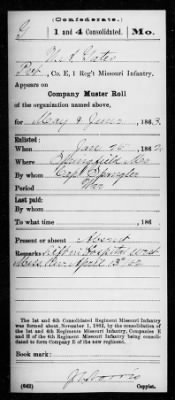 (Confederate.)
G 1 and 4 Consolidated. Mo.
W. L. Gates
Pvt, Co. E, 1 Reg't Missouri Infantry.
Appears on
Company Muster Roll
of the organization named above,
for May & June, 1863.
Enlisted:
When Jan 26, 1862
Where Springfield Mo
By whom Capt Spangler
Period War
Last paid:
By whom
To what time , 186 .
Present or absent Absent
Remarks: Hospital west
Miss. April 13" 62
The 1st and 4th Consolidated Regiment Missouri Infantry
was formed about November 1, 1862, by the consolidation of
the 1st and 4th Regiments Missouri Infantry, Companies E
and H of the 4th Regiment Missouri Infantry being consolidated
to form Company E of the new regiment.
Book mark:
(642) Copyist.